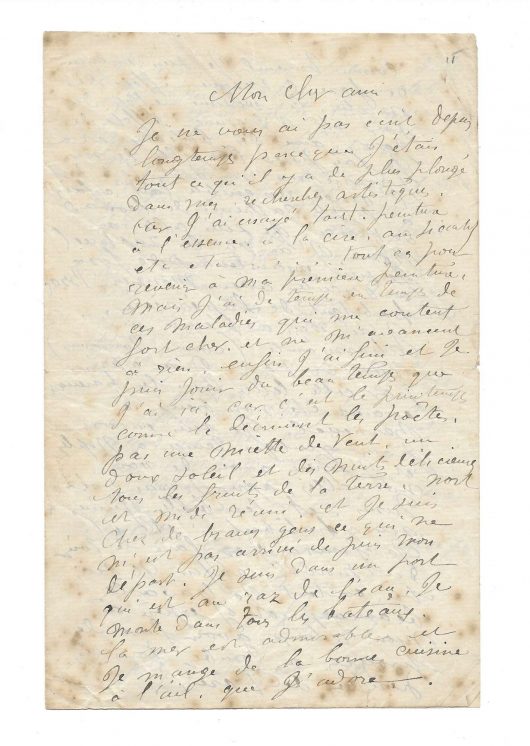 15
Mon cher ami
Je ne vous ai pas écrit depuis
longtemps parce que j'étais
tout ce qu'il y a de plus plongé
dans mes recherches artistiques.
car j'ai essayé tout. peinture
à l'essence. à la cire. au siccatif
etc etc. tout ça pour
revenir a ma première peinture.
Mais j'ai de temps en temps de
ces maladies qui me coutent
fort cher. et ne m'avancent
à rien. enfin j'ai fini et je
puis jouir du beau temps que
j'ai ici car c'est le printemps
comme le décrivent les poètes.
pas une miette de vent. un
doux soleil et des nuits délicieuses
tous les fruits de la terre. nord
et midi réuni. et je suis
chez de braves gens ce qui ne
m'est pas arrivé depuis mon
départ. Je suis dans un port
qui est au raz de l'eau. Je
monte dans tous les bateaux
la mer est admirable et
je mange de la bonne cuisine
à l'ail. que j'adore.